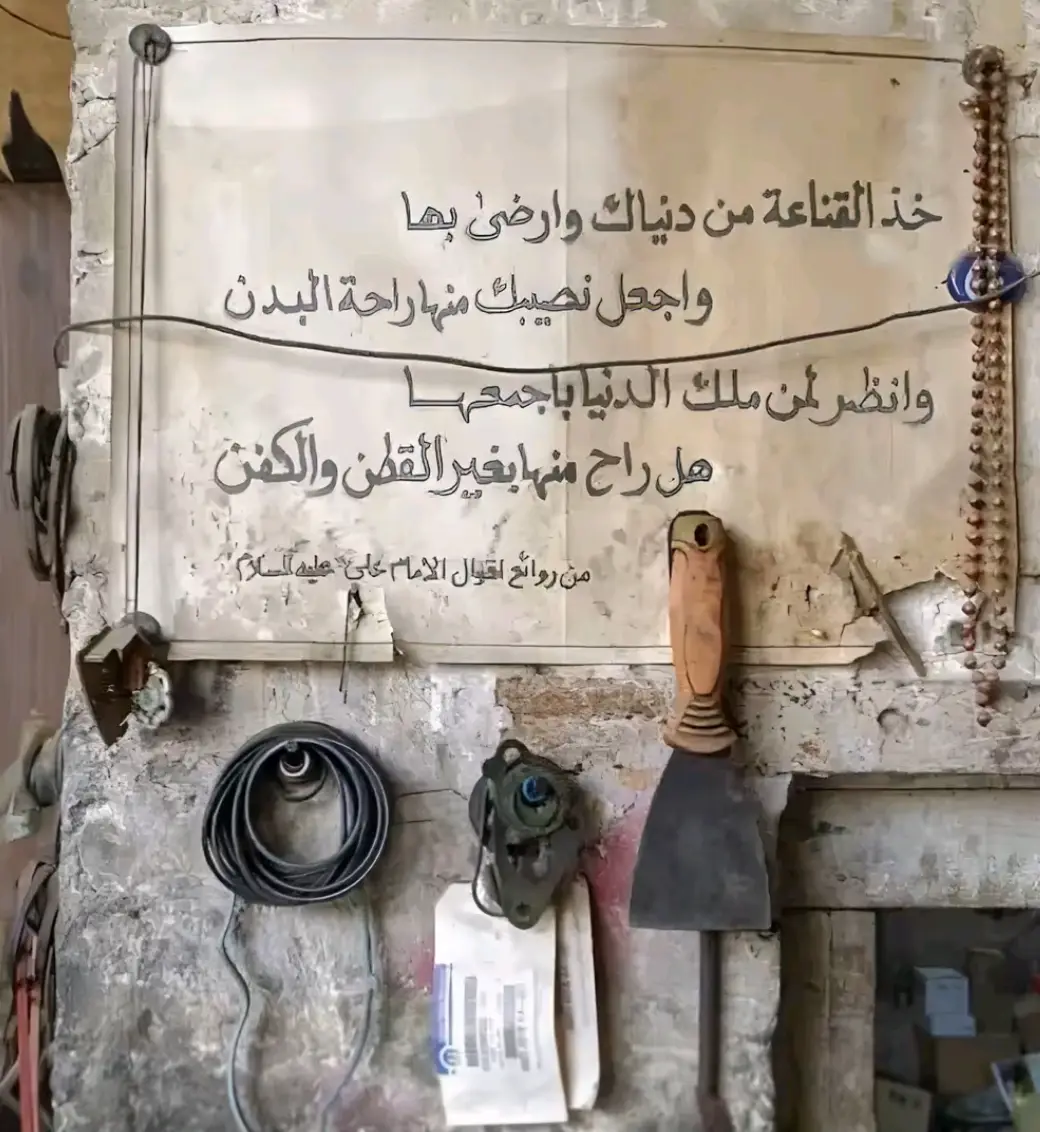 خذ القناعة من دنياك وارضىٰ بها
واجعل نصيبك منها راحة البدن
وانظر لمن ملك الدنيا بأجمعها
هل راح منها بغير القطن والكفن
من روائع اقوال الامام علي عليه السلام